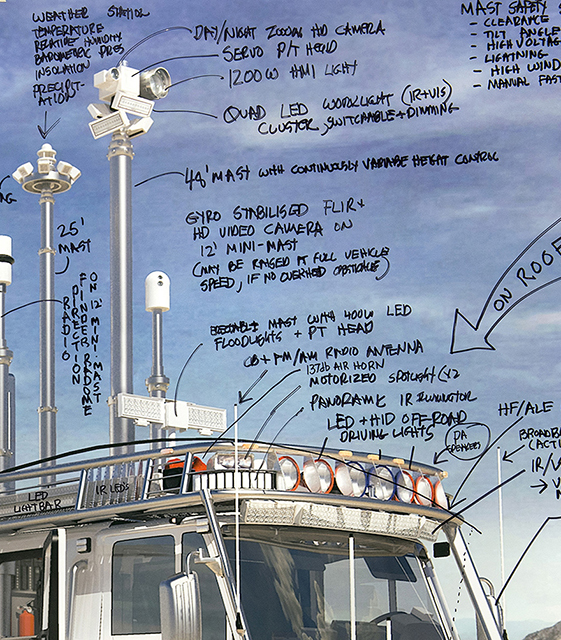 WEATHER STATION
TEMPERATURE
RELATIVE HUMIDITY
BAROMETRIC PRES
INSOLATION
PRECIPIT-
ATION
DAY/NIGHT 2000mm HD CAMERA
SERVO P/T HEAD
1200W HMI LIGHT
QUAD LED WORKLIGHT (IR+VIS)
CLUSTER, SWITCHABLE + DIMMING
MAST SAFETY S
- CLEARANCE
- TILT ANGLE
- HIGH VOLTAG
- LIGHTNING
- HIGH WIND
- MANUAL FAST
MAST WITH CONTINUOUSLY VARIABLE HEIGHT CONTROL
AG
25'
MAST
GYRO STABILISED FLIR +
HD VIDEO CAMERA ON
12' MINI-MAST
(MAY BE RAISED AT FULL VEHICLE
SPEED, IF NO OVERHEAD OBSTACLES)
RADIO
DIRECTION
FINDER RADOME
ON 12' MINI-MAST
ON ROOF
MAST WITH 400W LED
FLOODLIGHTS + PT HEAD
CB + FM/AM RADIO ANTENNA
137db AIR HORN
MOTORIZED SPOTLIGHT
PANORAMIC IR ILLUMINATOR
LED + HID OFF-ROAD
DRIVING LIGHTS
PA
SPEAKERS
HF/ALE
BROADBA
(ACTI
IR/V
LED
LIGHTBAR
IR LEDs